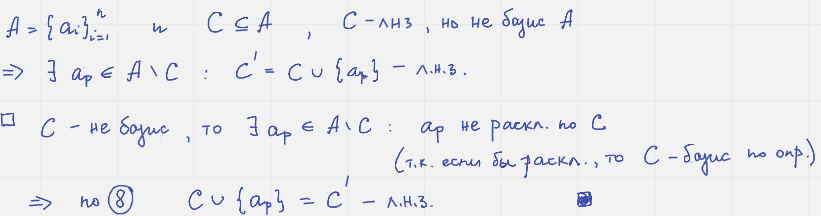 A = {aᵢ}ⁿᵢ₌₁ и C ⊆ A , C – ЛНЗ , но не базис A
=> ∃ aₚ ∈ A \ C : C' = C ∪ {aₚ} – л.н.з.
□ C – не базис , то ∃ aₚ ∈ A \ C : aₚ не раскл. по C
(т.к. если бы раскл., то C – базис по опр.)
=> по ⑧ C ∪ {aₚ} = C' – л.н.з. ■